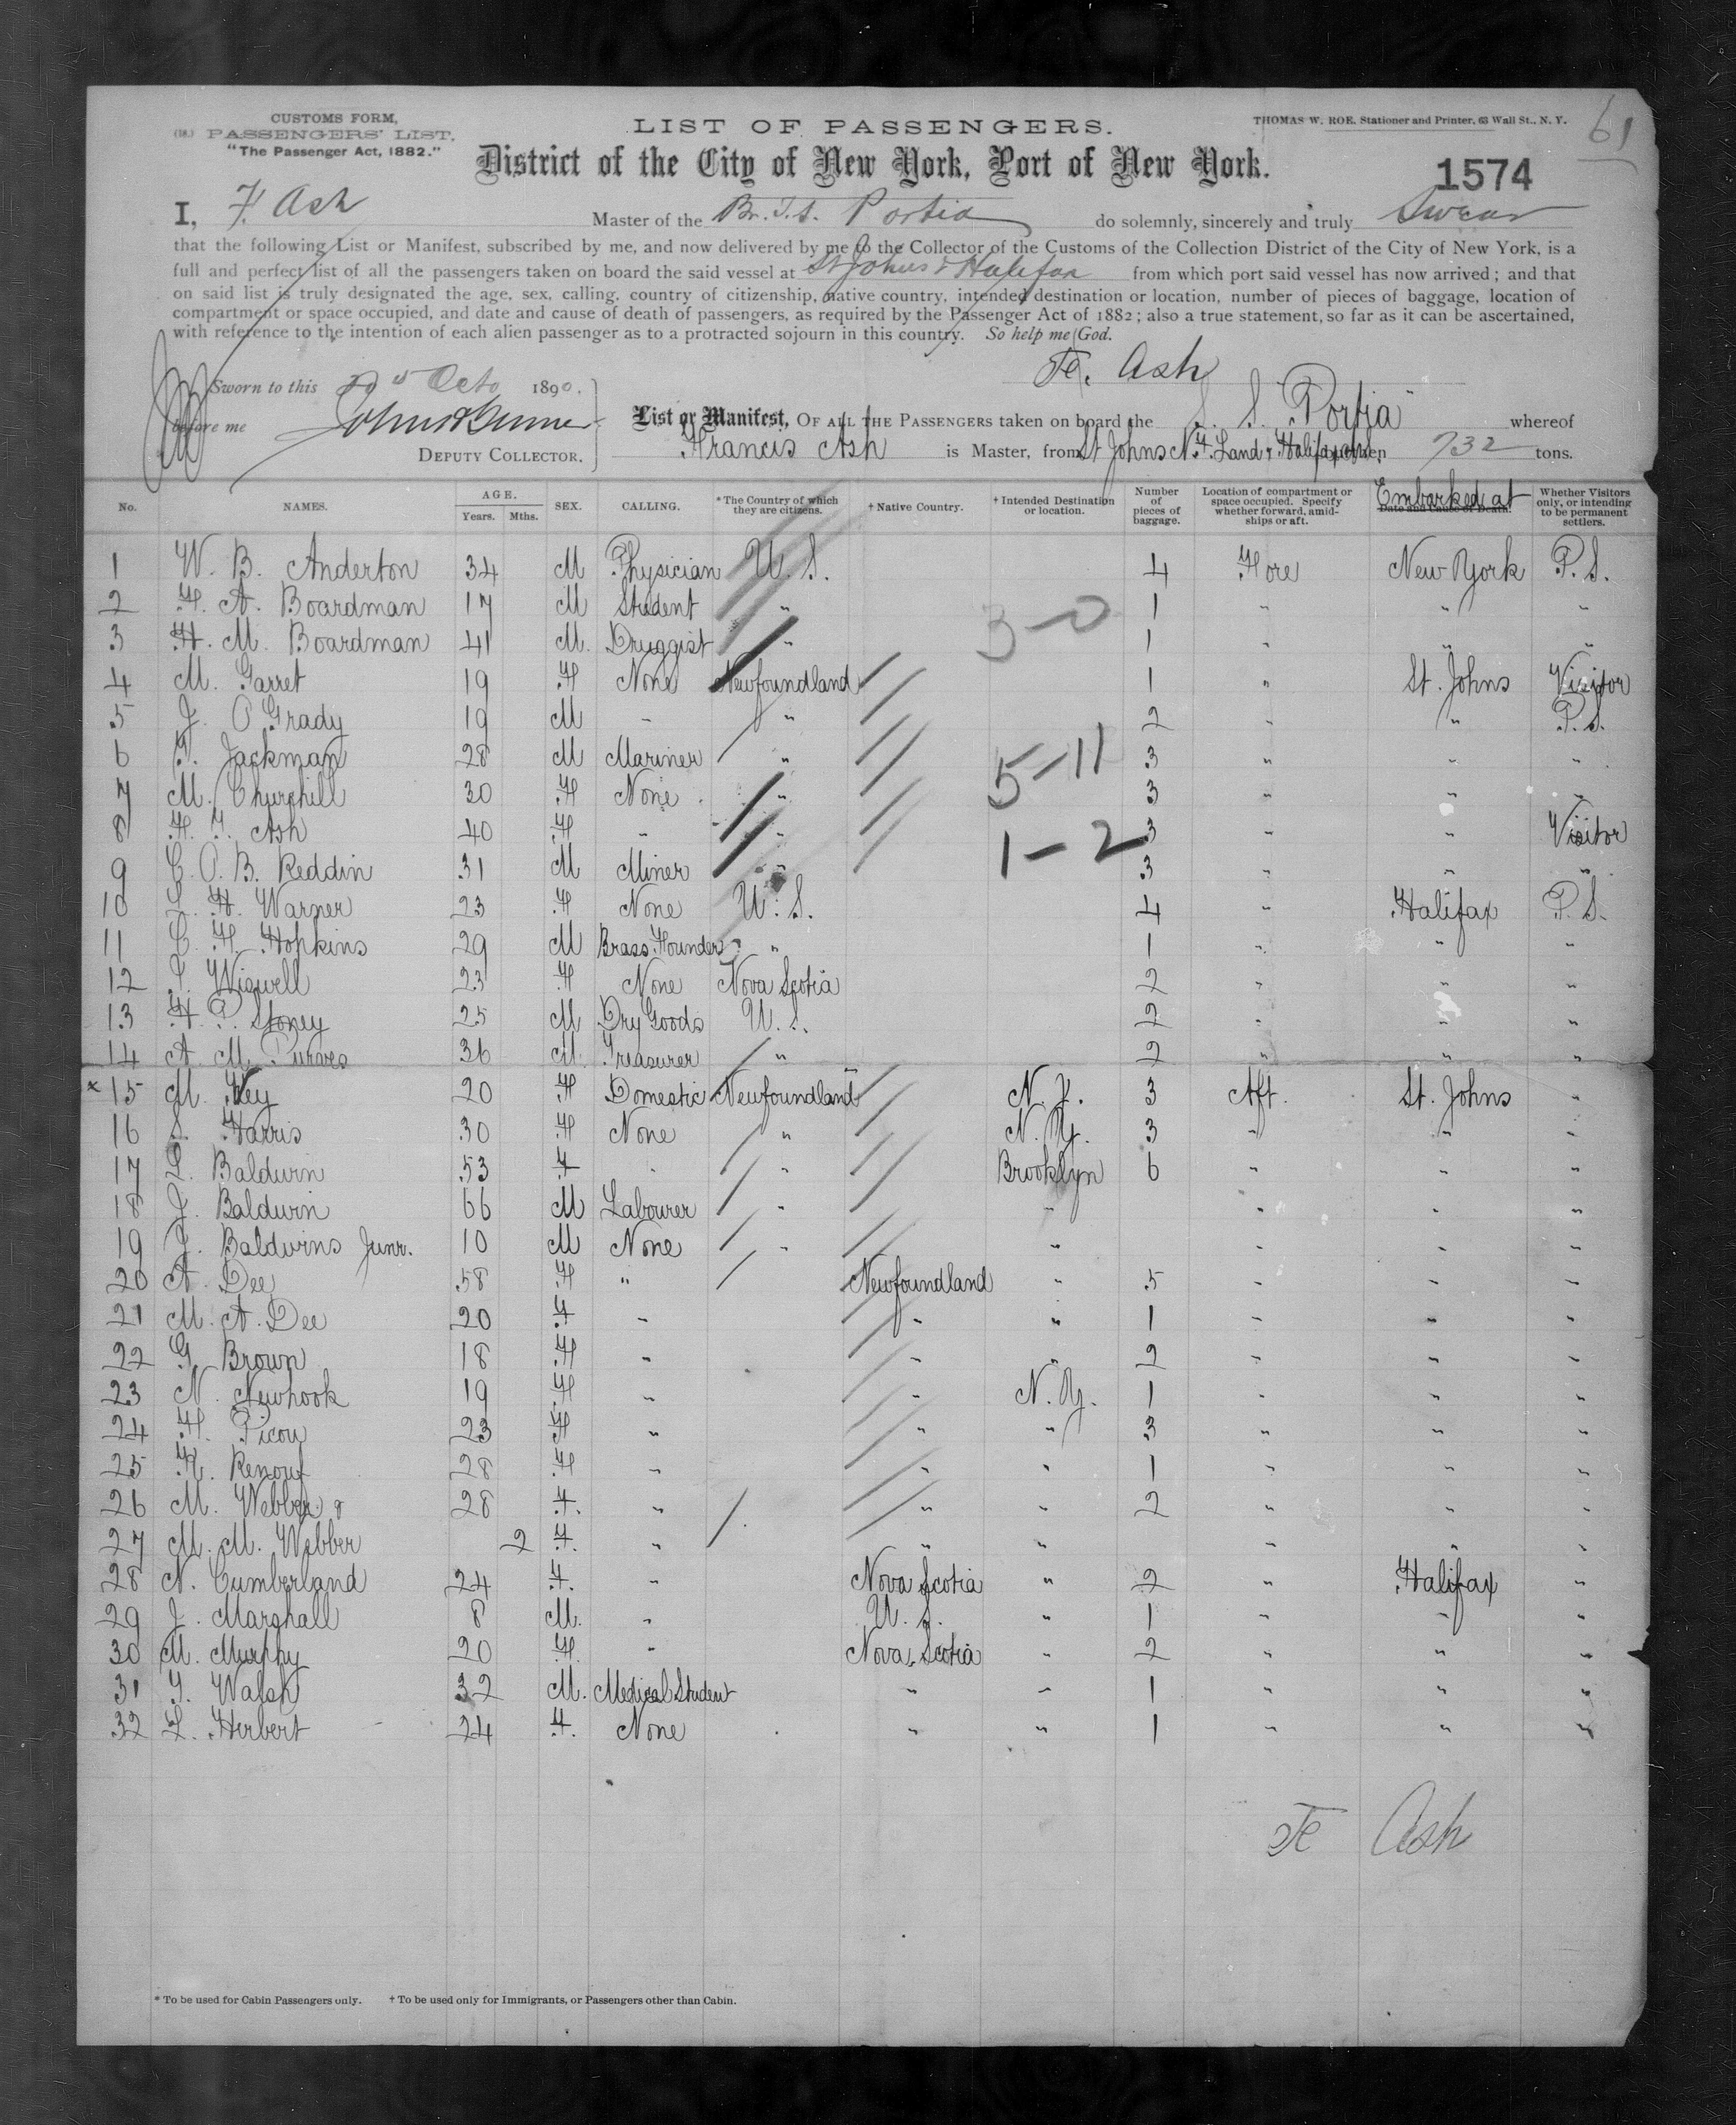 CUSTOMS FORM,
(18.) PASSENGERS' LIST.
"The Passenger Act, 1882."
LIST OF PASSENGERS.
THOMAS W. ROE. Stationer and Printer, 63 Wall St., N. Y.
61
District of the City of New York, Port of New York.
1574
I, F. Ash Master of the Br. S.S. Portia do solemnly, sincerely and truly Swear
that the following List or Manifest, subscribed by me, and now delivered by me to the Collector of the Customs of the Collection District of the City of New York, is a
full and perfect list of all the passengers taken on board the said vessel at St Johns & Halifax from which port said vessel has now arrived; and that
on said list is truly designated the age, sex, calling, country of citizenship, native country, intended destination or location, number of pieces of baggage, location of
compartment or space occupied, and date and cause of death of passengers, as required by the Passenger Act of 1882; also a true statement, so far as it can be ascertained,
with reference to the intention of each alien passenger as to a protracted sojourn in this country. So help me God.
F. Ash
Sworn to this Octo 1890.
before me
DEPUTY COLLECTOR.
List or Manifest, OF ALL THE PASSENGERS taken on board the S. S. "Portia" whereof
Francis Ash is Master, from St Johns N.F. Land & Halifax burthen 732 tons.
No. NAMES. AGE. Years. Mths. SEX. CALLING. *The Country of which they are citizens. †Native Country. †Intended Destination or location. Number of pieces of baggage. Location of compartment or space occupied. Specify whether forward, amidships or aft. Embarked at Date and Cause of Death. Whether Visitors only, or intending to be permanent settlers.
1 W. B. Anderton 34 M Physician U. S. 4 Fore New York P. S.
2 F. A. Boardman 17 M Student " 1 " " "
3 H. M. Boardman 41 M. Druggist " 1 " " "
3-0
4 M. Garret 19 F None Newfoundland 1 " St. Johns Visitor
5 J. O'Grady 19 M - " 2 " " P. S.
6 T. Jackman 28 M Mariner " 3 " " "
5-11
7 M. Churchill 30 F None " 3 " " "
8 F. J. Ash 40 F " " 3 " " Visitor
1-2
9 C. O. B. Reddin 31 M Miner " 3 " " "
10 L. H. Warner 23 F None U. S. 4 " Halifax P. S.
11 C. F. Hopkins 29 M Brass Founder " 1 " " "
12 Wiswell 23 F None Nova Scotia 2 " " "
13 H. P. Stoney 25 M Dry Goods U. S. 2 " " "
14 A. M. Purves 36 M. Treasurer " 2 " " "
x 15 M. Key 20 F Domestic Newfoundland N. Y. 3 Aft. St. Johns "
16 S. Harris 30 F None " N. Y. 3 " " "
17 L. Baldwin 53 F " " Brooklyn 6 " " "
18 J. Baldwin 66 M Labourer " " " " "
19 J. Baldwins Junr. 10 M None " " " " "
20 A. Dee 58 F " Newfoundland " 5 " " "
21 M. A. Dee 20 F " " " 1 " " "
22 G. Brown 18 F " " " 2 " " "
23 N. Newhook 19 F " " N. Y. 1 " " "
24 F. Picou 23 F " " " 3 " " "
25 Renouf 28 F " " " 1 " " "
26 M. Webber & 28 F. " " " 2 " " "
27 M. M. Webber 2 F. " " " " " "
28 N. Cumberland 24 F. " Nova Scotia " 2 " Halifax "
29 J. Marshall 8 M. " U. S. " 1 " " "
30 M. Murphy 20 F. " Nova Scotia " 2 " " "
31 Walsh 32 M. Medical Student " " 1 " " "
32 L. Herbert 24 F. None " " 1 " " "
F Ash
* To be used for Cabin Passengers only. † To be used only for Immigrants, or Passengers other than Cabin.